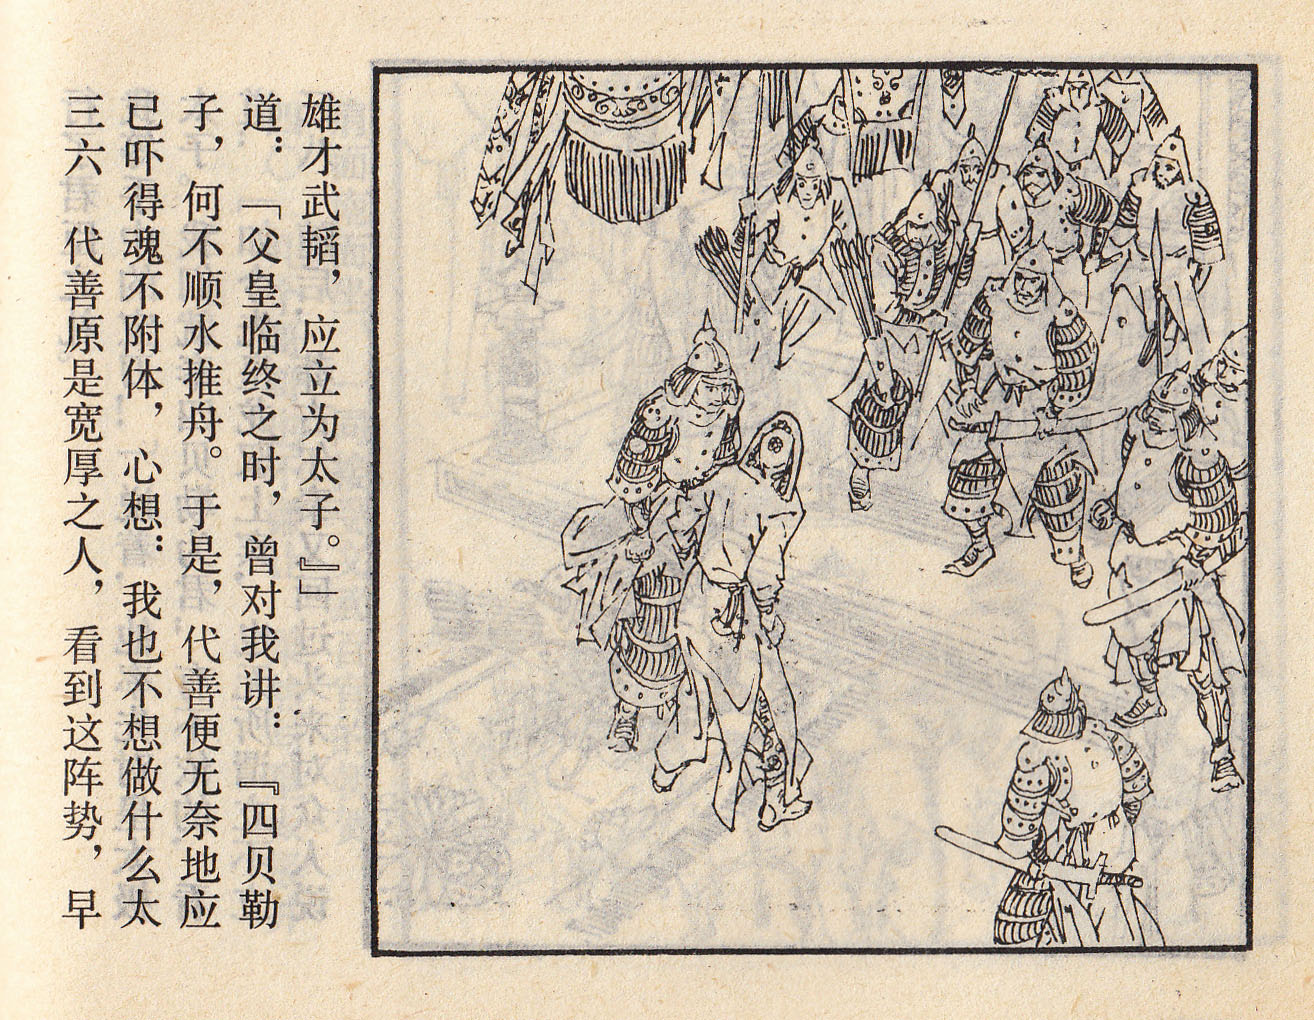 三六　代善原是宽厚之人，看到这阵势，早
已吓得魂不附体，心想：我也不想做什么太
子，何不顺水推舟。于是，代善便无奈地应
道：「父皇临终之时，曾对我讲：『四贝勒
雄才武韬，应立为太子。』」